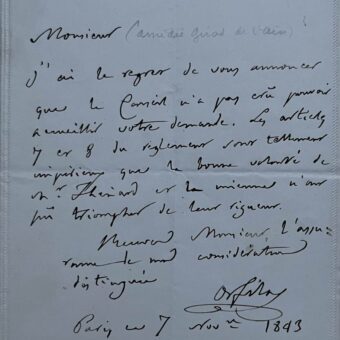 Monsieur (Amédée Girod de l'Ain)
j'ai le regret de vous annoncer
que le Conseil n'a pas crû pouvoir
accueillir votre demande. Les articles
7 et 8 du règlement sont tellement
impérieux que la bonne volonté de
Mr. Thénard et la mienne n'ont
pû triompher de leur rigueur.
Recevez Monsieur l'assu-
rance de ma considération
distinguée
Orfila
Paris ce 7 Novre 1843